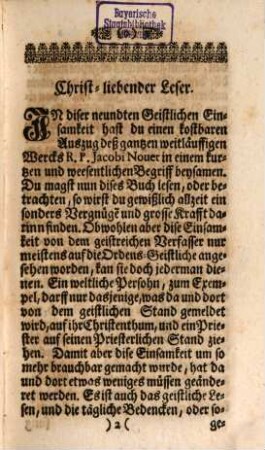 Bayerische
Staatsbibliothek
Christ-liebender Leser.
IN diser neundten Geistlichen Ein-
samkeit hast du einen kostbaren
Auszug deß gantzen weitläuffigen
Wercks R. P. Jacobi Nouet in einem kur-
tzen und weesentlichen Begriff beysamen.
Du magst nun dises Buch lesen, oder be-
trachten, so wirst du gewißlich allzeit ein
sonders Vergnügẽ und grosse Krafft da-
rinn finden. Obwohlen aber dise Einsam-
keit von dem geistreichen Verfasser nur
meistens auf die Ordens-Geistliche ange-
sehen worden, kan sie doch jederman die-
nen. Ein weltliche Persohn, zum Exem-
pel, darff nur dasjenige, was da und dort
von dem geistlichen Stand gemeldet
wird, auf ihr Christenthum, und ein Prie-
ster auf seinen Priesterlichen Stand zie-
hen. Damit aber dise Einsamkeit um so
mehr brauchbar gemacht wurde, hat da
und dort etwas weniges müssen geände-
ret werden. Es ist auch das geistliche Le-
sen, und die tägliche Bedencken, oder so-
)2( ge-